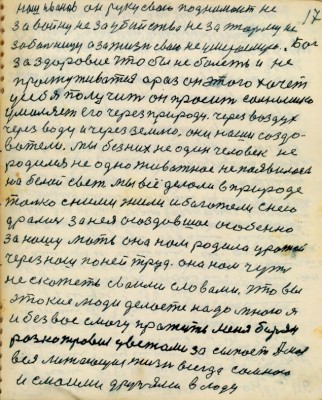 наш Иванов он руку свою поднимает не 17
за войну не за убийство не за тюрму не
за больницу а за жизнь свою не умирающую. Бог
за здоровие что бы не болеть и не
простуживатся а раз он этого хочет
у себя получить он просит солнышко
умаляет его через природу. через воздух
через воду и через землю. они наши создо-
ватели. мы без них не один человек не
родился не одно животное не появилося
на белой свет. мы всё делали в природе
только с ними жили и богатели с него
драли за нея создавшое особенно
за нашу мать она нам родила урожай
через нашу по ней труд. она нам чуть
не скажеть своими словами. что вы
это кие люди делаете надо мною я
и без вас смогу прожить меня бурян
разнотравия цветами за сыпает Я моя
вся летающия жизнь всегда со мною
и с моими друзями в ладу